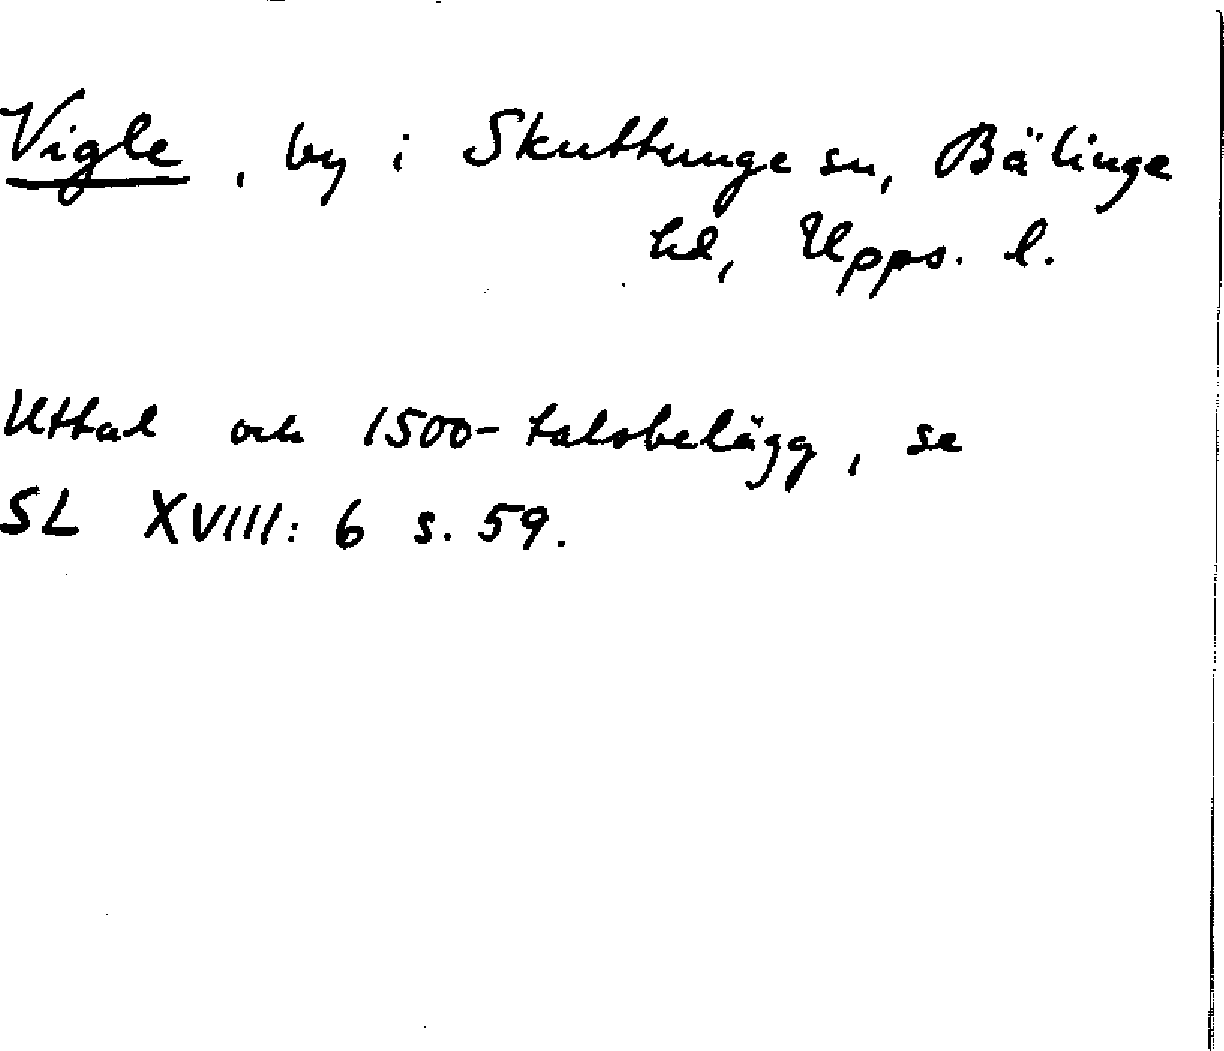 Vigle, by i Skuttunge sn, Bälinge
hd, Upps. l.
Uttal och 1500-talsbelägg, se
SL XVIII: 6 s. 59.